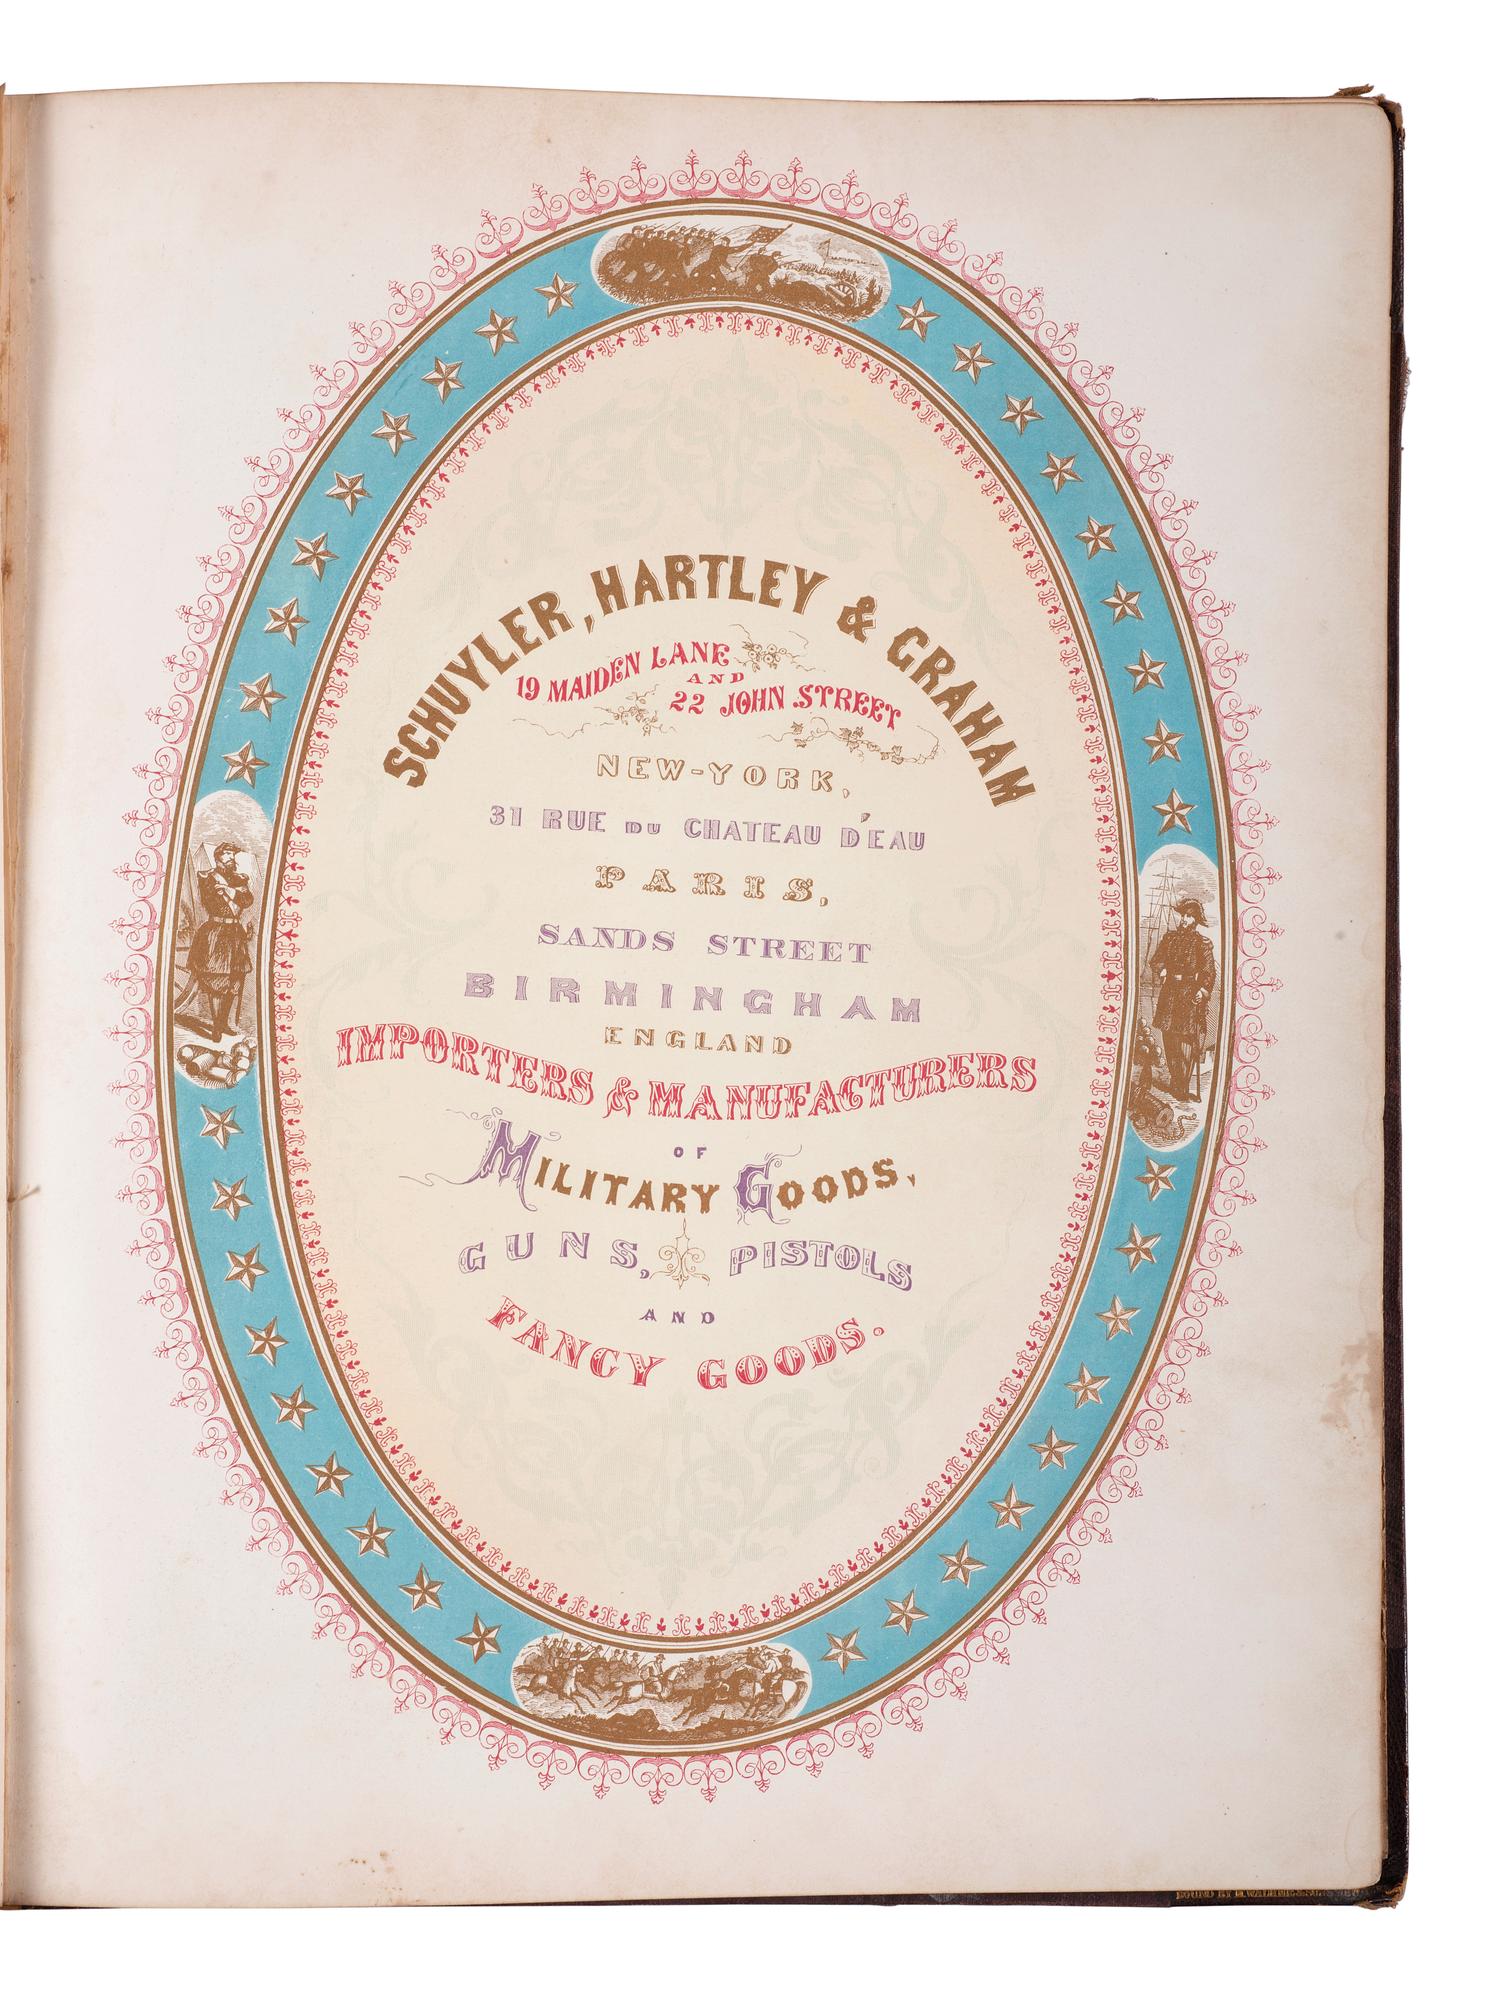 SCHUYLER, HARTLEY & GRAHAM
19 MAIDEN LANE
AND
22 JOHN STREET
NEW-YORK,
31 RUE DU CHATEAU D'EAU
PARIS,
SANDS STREET
BIRMINGHAM
ENGLAND
IMPORTERS & MANUFACTURERS
OF
MILITARY GOODS,
GUNS, PISTOLS
AND
FANCY GOODS.
BOUND BY